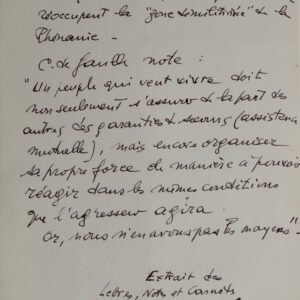 réoccupent la "zone démilitarisée" de la
Rhénanie -
C. de Gaulle note :
"Un peuple qui veut vivre doit
non seulement s'assurer de la part des
autres des garanties de secours (assistance
mutuelle), mais encore organiser
sa propre force de manière à pouvoir
réagir dans les mêmes conditions
que l'agresseur agira.
Or, nous n'en avons pas les moyens"-
Extrait des
Lettres, Notes et Carnets